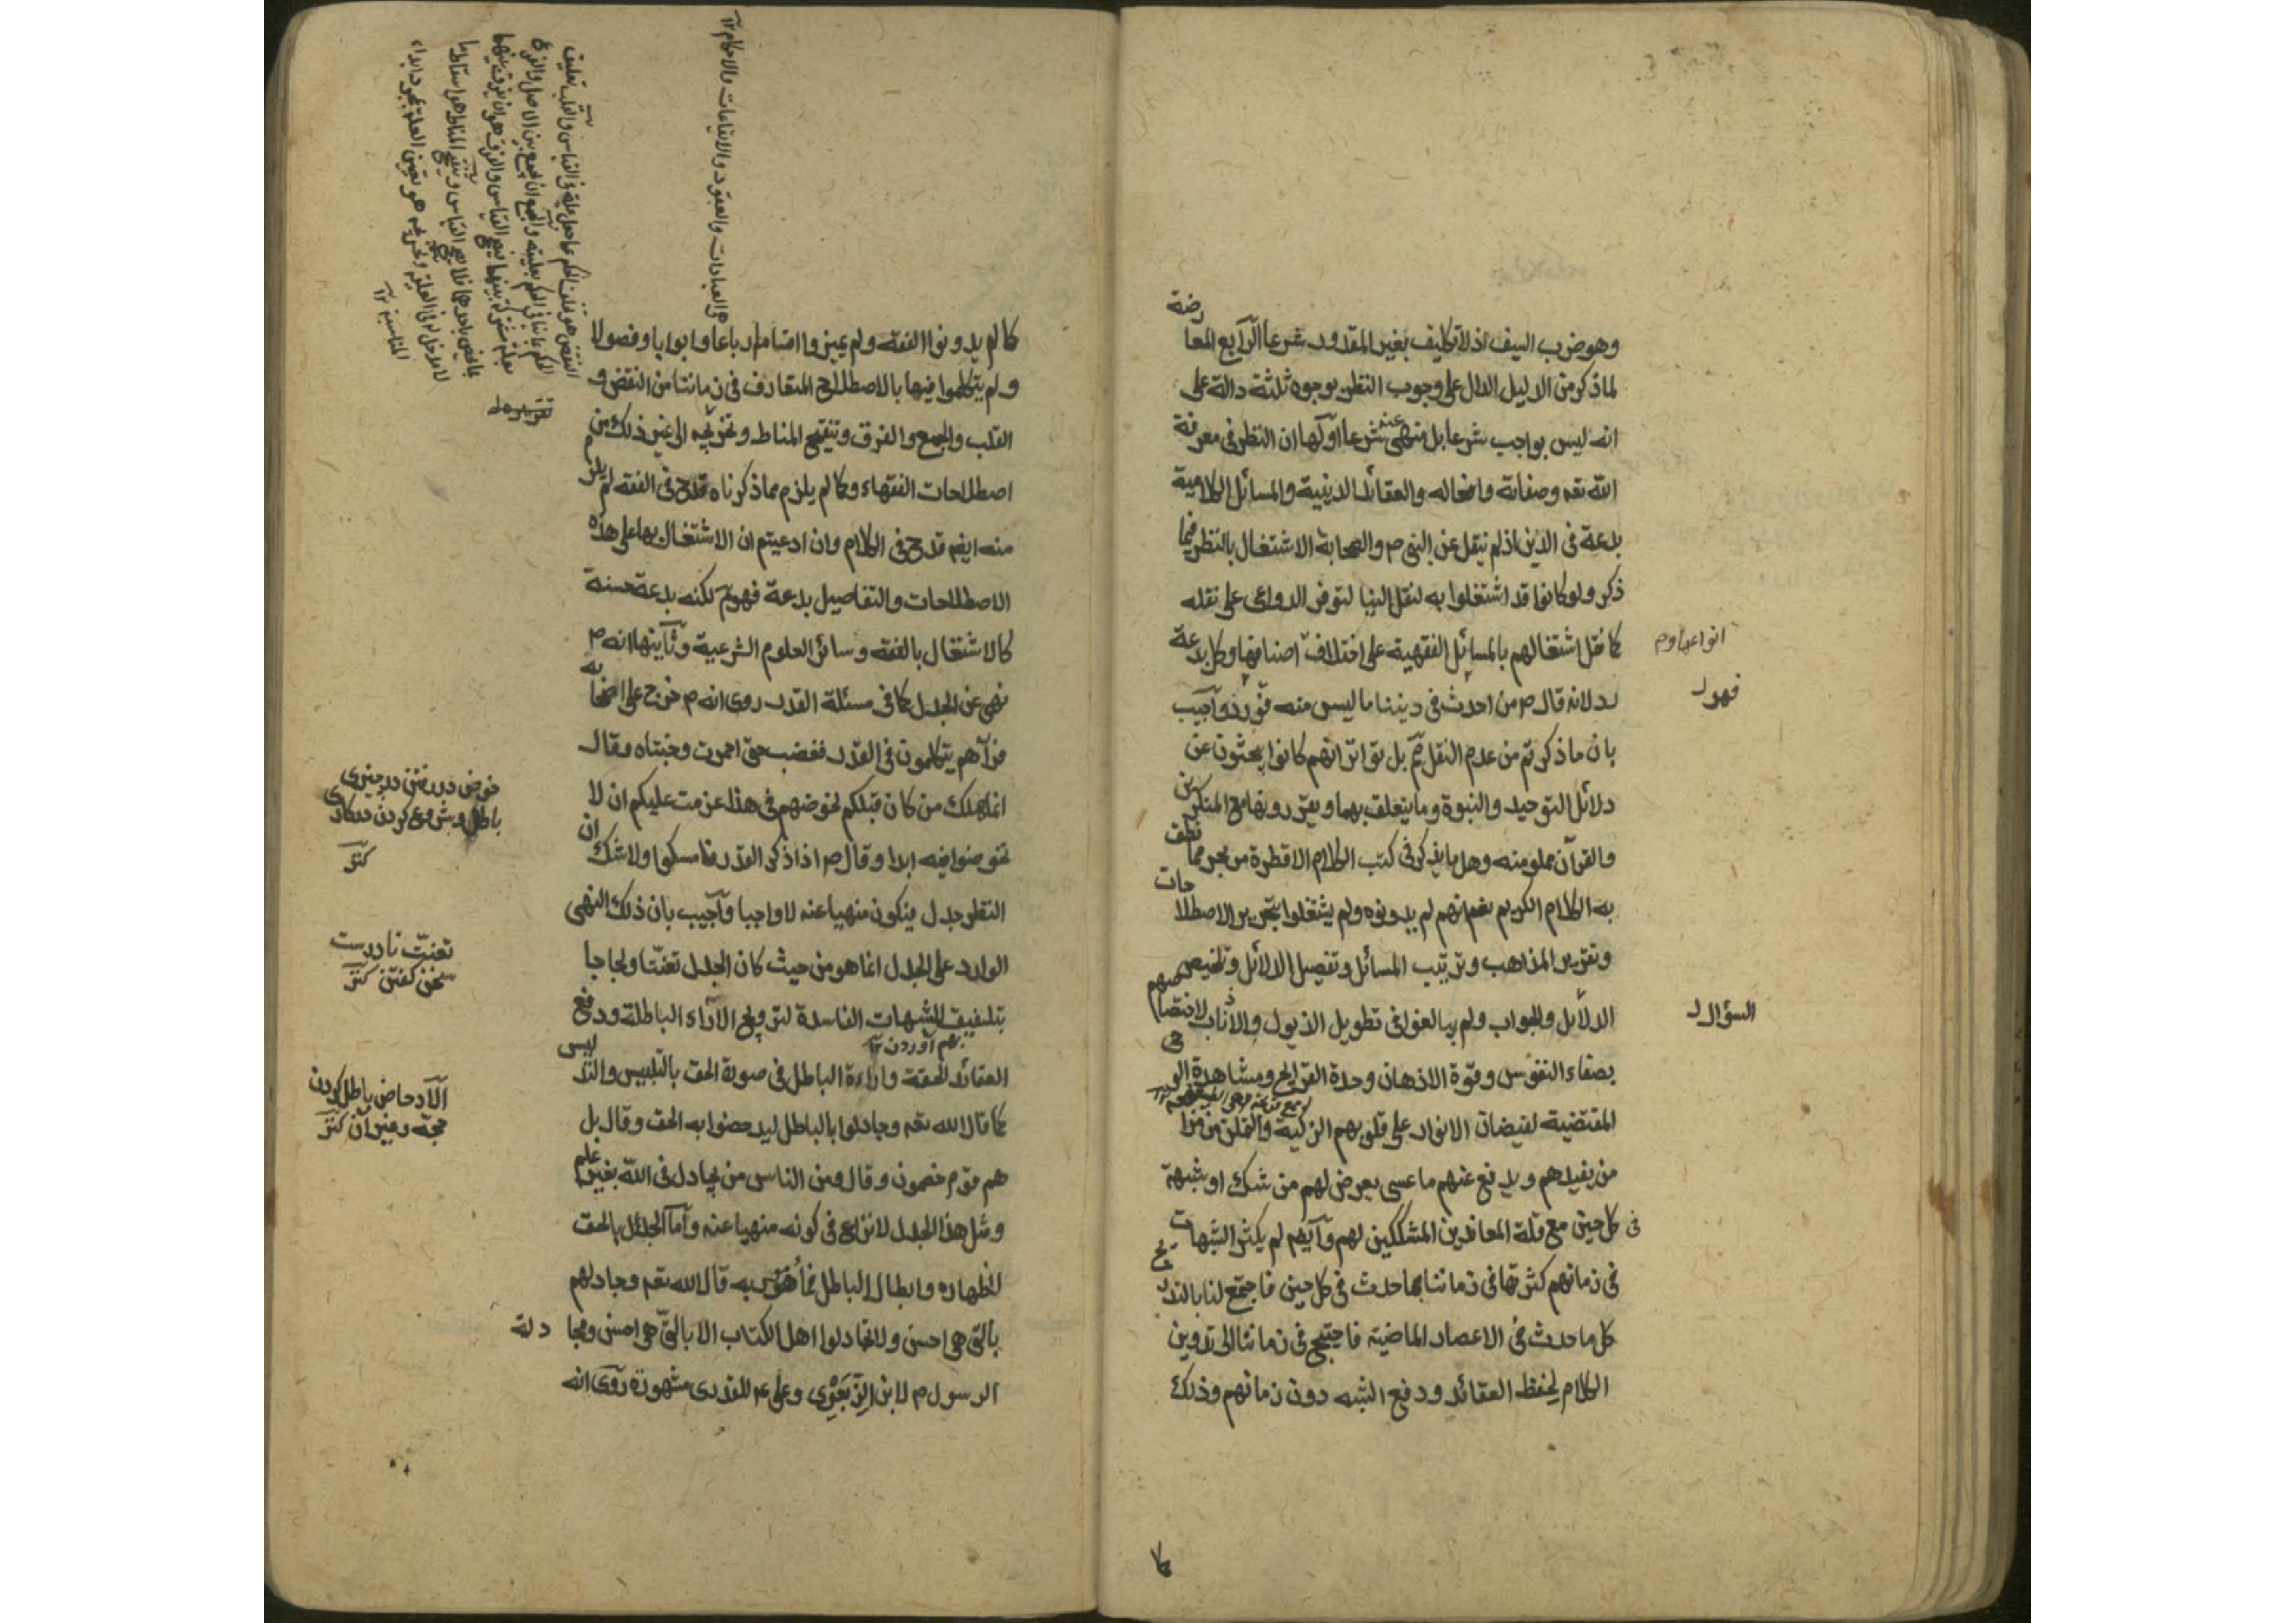 وهو ضرب السيف اذ لا تكليف بغير المقدور شرعا الرابع المعا
رضة
لما ذكر من الدليل الدال على وجوب النظر بوجوه ثلثة دالة على
انه ليس بواجب شرعا بل منهى عنه شرعا اولها ان النظر فى معرفة
الله تعه وصفاته وافعاله والعقائد الدينية والمسائل الكلامية
بدعة فى الدين اذ لم ينقل عن النبى م والصحابة الاشتغال بالنظر فيما
ذكر ولو كانوا قد اشتغلوا به لنقل الينا لتوفر الدواعى على نقله
كما نقل اشتغالهم بالمسائل الفقهية على اختلاف اصنافها وكل بدعة
رد لانه قال م من احدث فى ديننا ما ليس منه فهو رد وآجيب
بان ما ذكرتم من عدم النقل مم بل تواتر انهم كانوا يبحثون عن
دلائل التوحيد والنبوة وما يتعلق بهما ويقررونها مع المنكرين
والقرآن مملو منه وهل ما يذكر فى كتب الكلام الا قطرة من بحر مما نطق
به الكلام الكريم نعم انهم لم يدونوه ولم يشتغلوا بتحرير الاصطلا
حات
وتقرير المذاهب وترتيب المسائل وتفصيل الدلائل وتلخيص
الدلائل والجواب ولم يبالغوا فى تطويل الذيول والاذناب لاختصا
صهم
بصفاء النفوس وقوة الاذهان وحدة القرايح ومشاهدة الو
حى
المقتضية لفيضان الانوار على قلوبهم الزكية والتمكن من مرا
من يفيدهم ويدفع عنهم ما عسى يعرض لهم من شك او شبهة
فى كل حين مع قلة المعاندين المشككين لهم وآيضم لم يكثر الشبهات
فى زمانهم كثرتها فى زماننا بما حدث فى كل حين فاجتمع لنا بالتدر
يج
كل ما حدث فى الاعصار الماضية فاحتيج فى زماننا الى تدوين
الكلام لحفظ العقائد ودفع الشبه دون زمانهم وذلك
كما
انواعها وم
فهو ل
السؤال ل
كما لم يدونوا الفقه ولم يميزوا اقسامه ارباعا وابوابا وفصولا
ولم يتكلموا فيها بالاصطلاح المتعارف فى زماننا من النقض و
القلب والجمع والفرق وتنقيح المناط وتخريجه الى غير ذلك من
اصطلاحات الفقهاء وكما لم يلزم مما ذكرناه قدح فى الفقه لم يلزم
منه ايضم قدح فى الكلام وان ادعيتم ان الاشتغال بها على هذه
الاصطلاحات والتفاصيل بدعة فهو مم لكنه بدعة حسنة
كالاشتغال بالفقه وسائر العلوم الشرعية وثآنيها انه م
نهى عن الجدل كما فى مسئلة القدر روى انه م خرج على اصحا
به
فرآهم يتكلمون فى القدر فغضب حتى احمرت وجنتاه وقال
انما هلك من كان قبلكم لخوضهم فى هذا عزمت عليكم ان لا
تخوضوا فيه ابدا وقال م اذا ذكر القدر فامسكوا ولا شك ان
النظر جدل فيكون منهيا عنه لا واجبا وآجيب بان ذلك النهى
الوارد على الجدل انما هو من حيث كان الجدل تعنتا ولجاجا
بتلفيق الشبهات الفاسدة لترويج الآراء الباطلة ودفع
بهم آوردن ١٢
العقائد الحقة واراءة الباطل فى صورة الحق بالتلبيس والتد
ليس
كما قال الله تعه وجادلوا بالباطل ليدحضوا به الحق وقال بل
هم قوم خصمون وقال ومن الناس من يجادل فى الله بغير علم
ومثل هذا الجدل لا نزاع فى كونه منهيا عنه وآما الجدل بالحق
لاظهاره وابطال الباطل فمأمور به قال الله تعه وجادلهم
بالتى هى احسن ولا تجادلوا اهل الكتاب الا بالتى هى احسن ومجا دلة
الرسول م لابن الزِّبَعْرى وعلى ع م للقدرى مشهورة روى انه
من العبادات والعقود والايقاعات والاحكام ١٢
خوض در رفتن در چيزى
باطل وشروع كردن در كارى
كنز
تعنّت نادرست
سخن كفتن كنز
الآدحاض باطل كردن
حجة وغير آن كنز